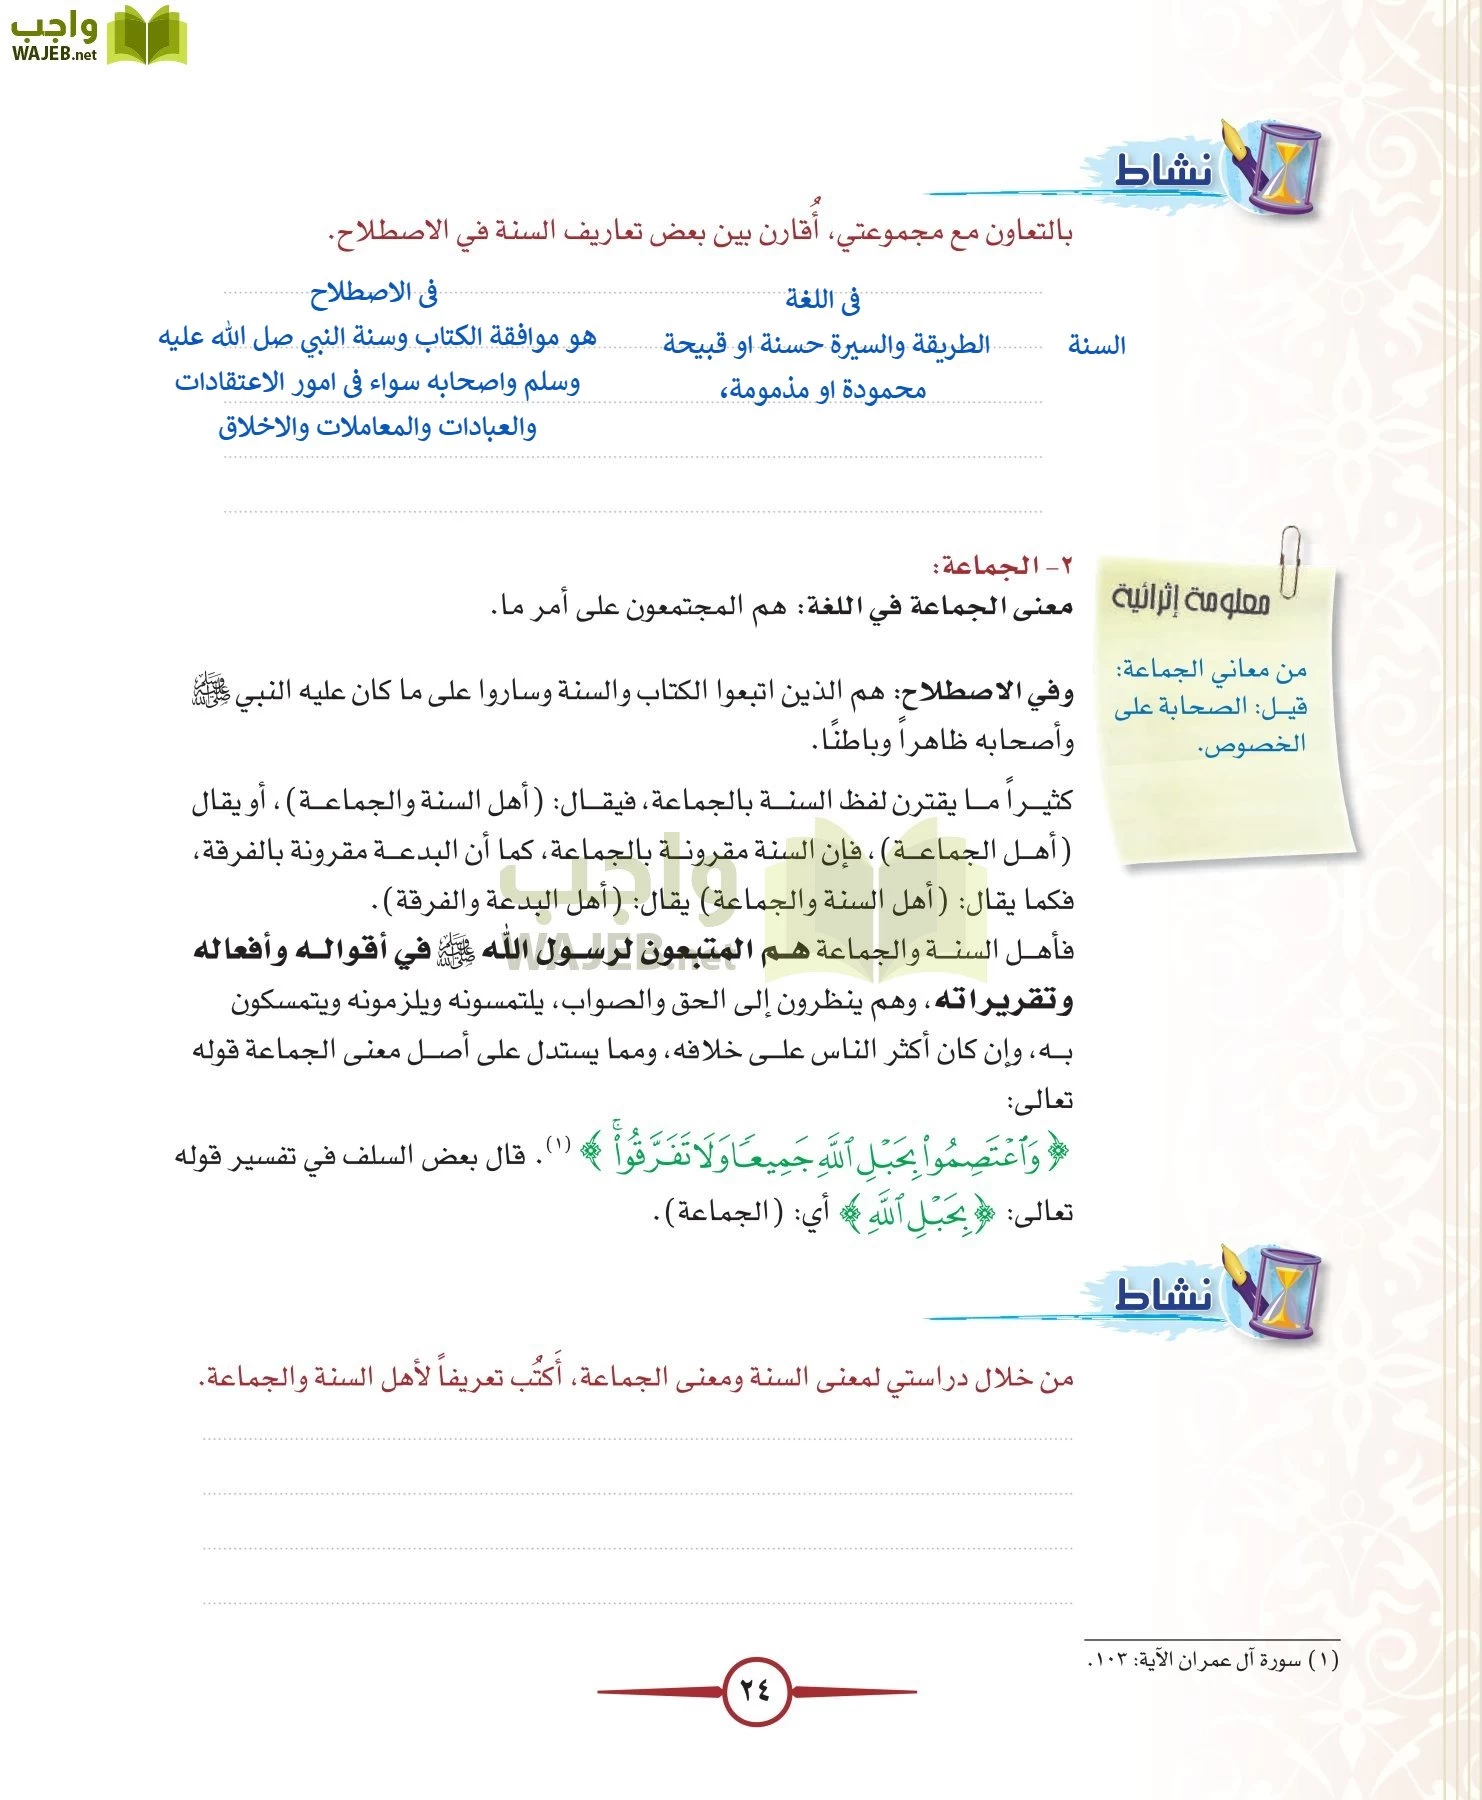 واجب
WAJEB.net
نشاط
بالتعاون مع مجموعتي، أُقارن بين بعض تعاريف السنة في الاصطلاح.
فى اللغة
فى الاصطلاح
السنة
الطريقة والسيرة حسنة او قبيحة
محمودة او مذمومة،
هو موافقة الكتاب وسنة النبي صل الله عليه
وسلم واصحابه سواء فى امور الاعتقادات
والعبادات والمعاملات والاخلاق
٢- الجماعة:
معنى الجماعة في اللغة: هم المجتمعون على أمر ما.
وفي الاصطلاح: هم الذين اتبعوا الكتاب والسنة وساروا على ما كان عليه النبي ﷺ
وأصحابه ظاهراً وباطنًا.
معلومة إثرائية
من معاني الجماعة:
قيل: الصحابة على
الخصوص.
كثيراً ما يقترن لفظ السنة بالجماعة، فيقال: (أهل السنة والجماعة)، أو يقال
(أهل الجماعة)، فإن السنة مقرونة بالجماعة، كما أن البدعة مقرونة بالفرقة،
فكما يقال: (أهل السنة والجماعة) يقال: (أهل البدعة والفرقة).
فأهل السنة والجماعة هم المتبعون لرسول الله ﷺ في أقواله وأفعاله
وتقريراته، وهم ينظرون إلى الحق والصواب، يلتمسونه ويلزمونه ويتمسكون
به، وإن كان أكثر الناس على خلافه، ومما يستدل على أصل معنى الجماعة قوله
تعالى:
﴿وَٱعۡتَصِمُواْ بِحَبۡلِ ٱللَّهِ جَمِيعٗا وَلَا تَفَرَّقُواْۚ﴾ (١). قال بعض السلف في تفسير قوله
تعالى: ﴿بِحَبۡلِ ٱللَّهِ﴾ أي: (الجماعة).
واجب
WAJEB.net
نشاط
من خلال دراستي لمعنى السنة ومعنى الجماعة، أَكتُب تعريفاً لأهل السنة والجماعة.
(١) سورة آل عمران الآية: ١٠٣.
٢٤